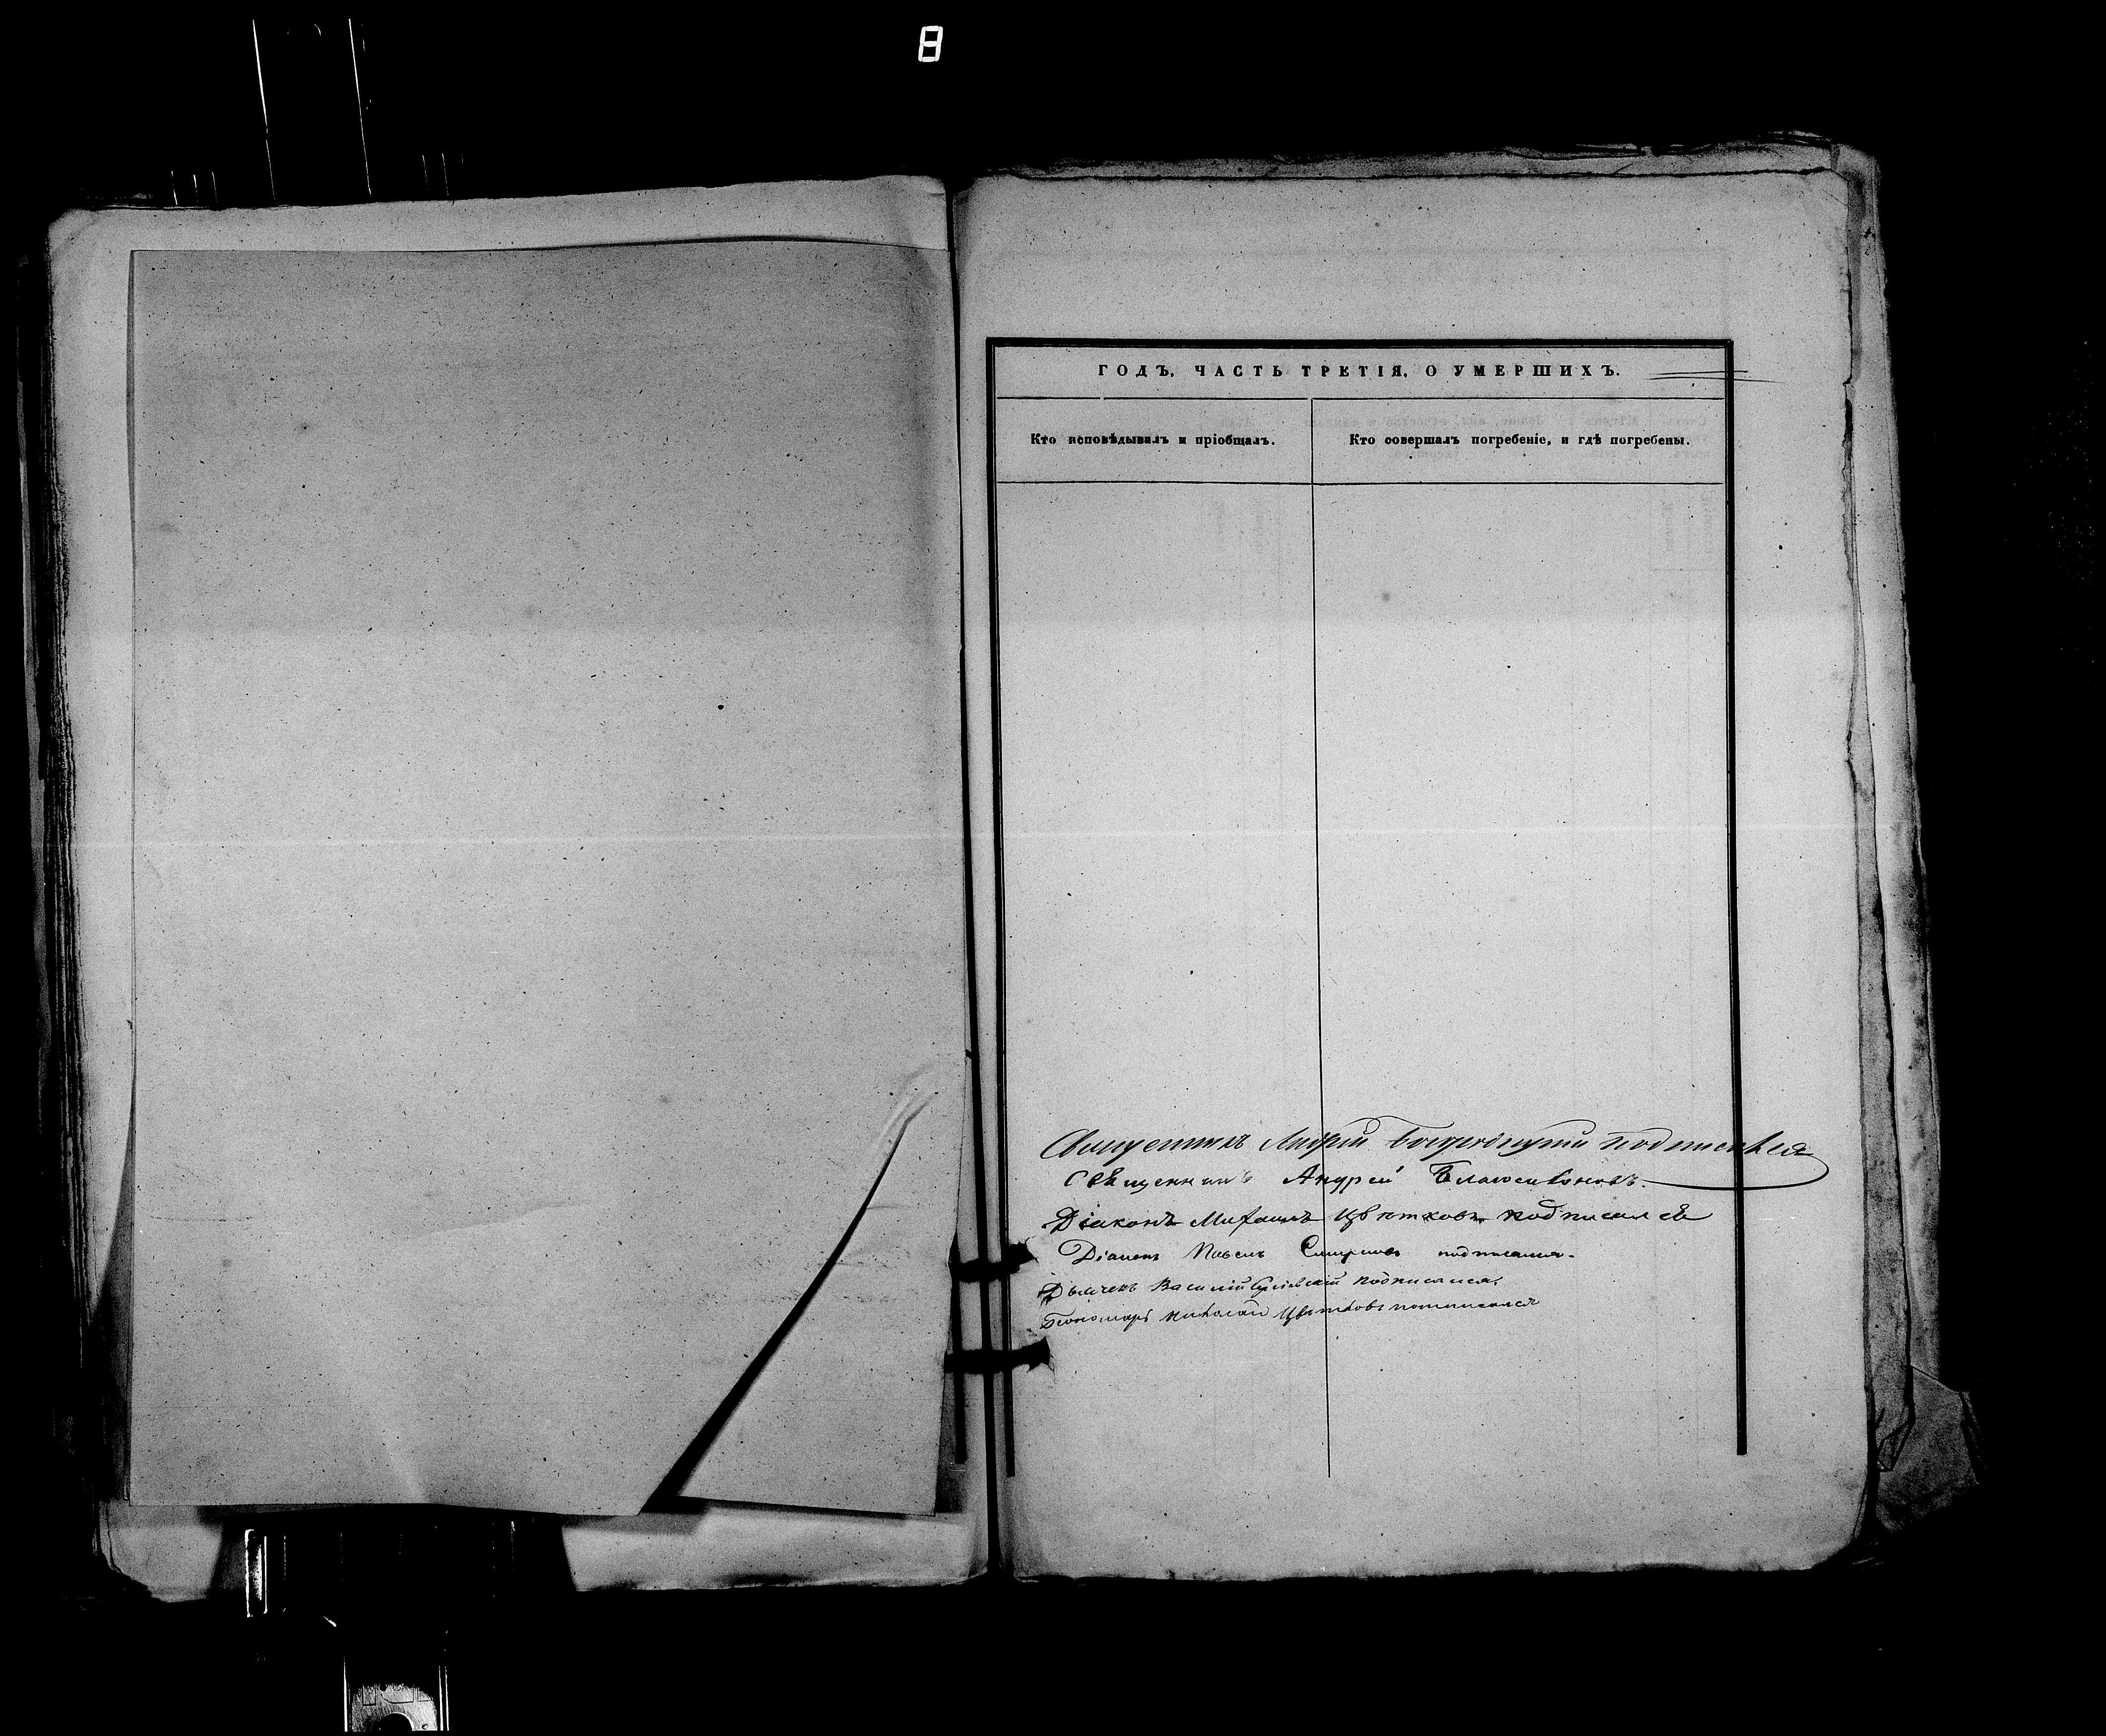 8
ГОДЪ, ЧАСТЬ ТРЕТІЯ, О УМЕРШИХЪ.
Кто исповѣдывалъ и пріобщалъ.
Кто совершалъ погребеніе, и гдѣ погребены.
Священникъ Андрей подписался
Священникъ Андрей
Діаконъ Михаилъ Цвѣтковъ подписался
Діаконъ Павелъ Смирновъ подписался.
Дьячекъ Василій подписался.
Пономарь Николай Цвѣтковъ потписался